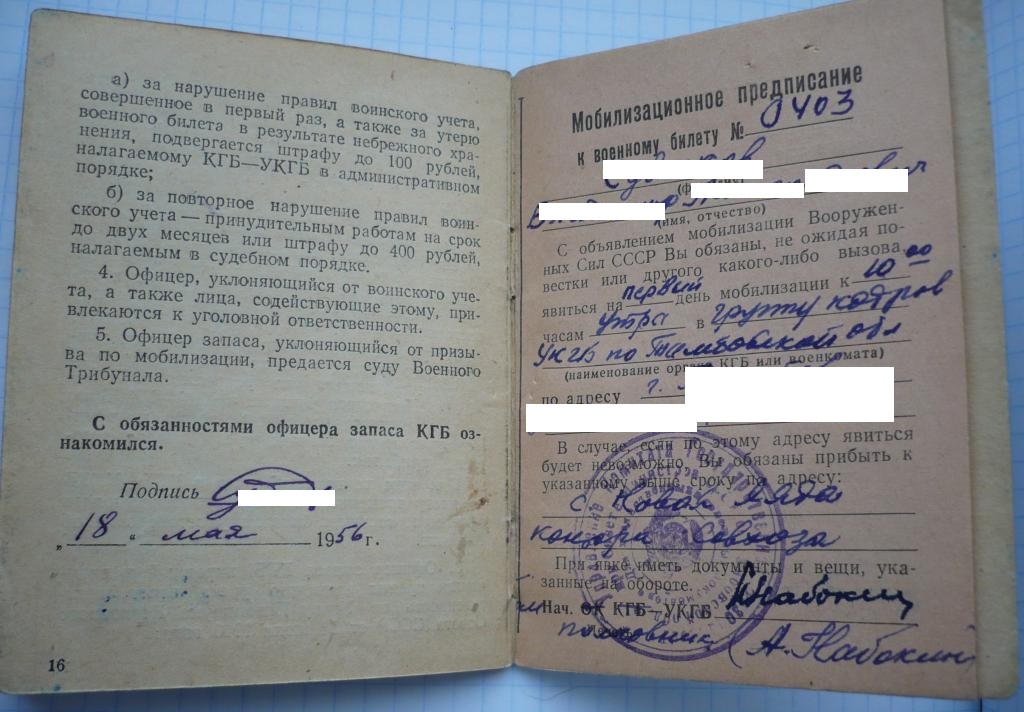 а) за нарушение правил воинского учета,
совершенное в первый раз, а также за утерю
военного билета в результате небрежного хра-
нения, подвергается штрафу до 100 рублей,
налагаемому КГБ—УКГБ в административном
порядке;
б) за повторное нарушение правил воин-
ского учета — принудительным работам на срок
до двух месяцев или штрафу до 400 рублей,
налагаемым в судебном порядке.
4. Офицер, уклоняющийся от воинского уче-
та, а также лица, содействующие этому, при-
влекаются к уголовной ответственности.
5. Офицер запаса, уклоняющийся от призы-
ва по мобилизации, предается суду Военного
Трибунала.
С обязанностями офицера запаса КГБ оз-
накомился.
Подпись
„18“ мая 1956 г.
16
Мобилизационное предписание
к военному билету № 0403
(имя, отчество)
С объявлением мобилизации Вооружен-
ных Сил СССР Вы обязаны, не ожидая по-
вестки или другого какого-либо вызова,
явиться на первый день мобилизации к 10 00
часам утра в группу кадров
УКГБ по Тамбовской обл
(наименование органа КГБ или военкомата)
по адресу г.
В случае, если по этому адресу явиться
будет невозможно, Вы обязаны прибыть к
указанному выше сроку по адресу:
с Новая Ляда
контора Совхоза
При явке иметь документы и вещи, ука-
занные на обороте.
Нач. ОК КГБ—УКГБ
полковник (А. Набокин